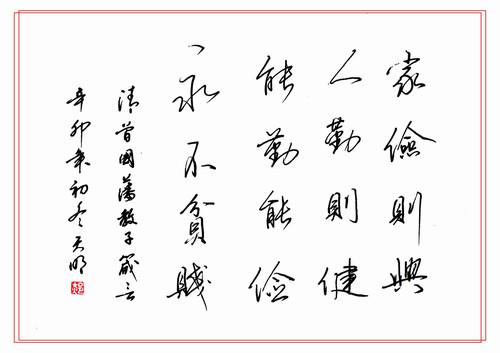 家儉則興
人勤則健
能勤能儉
永不貧賤
清曾國藩教子箴言
辛卯年初冬天明